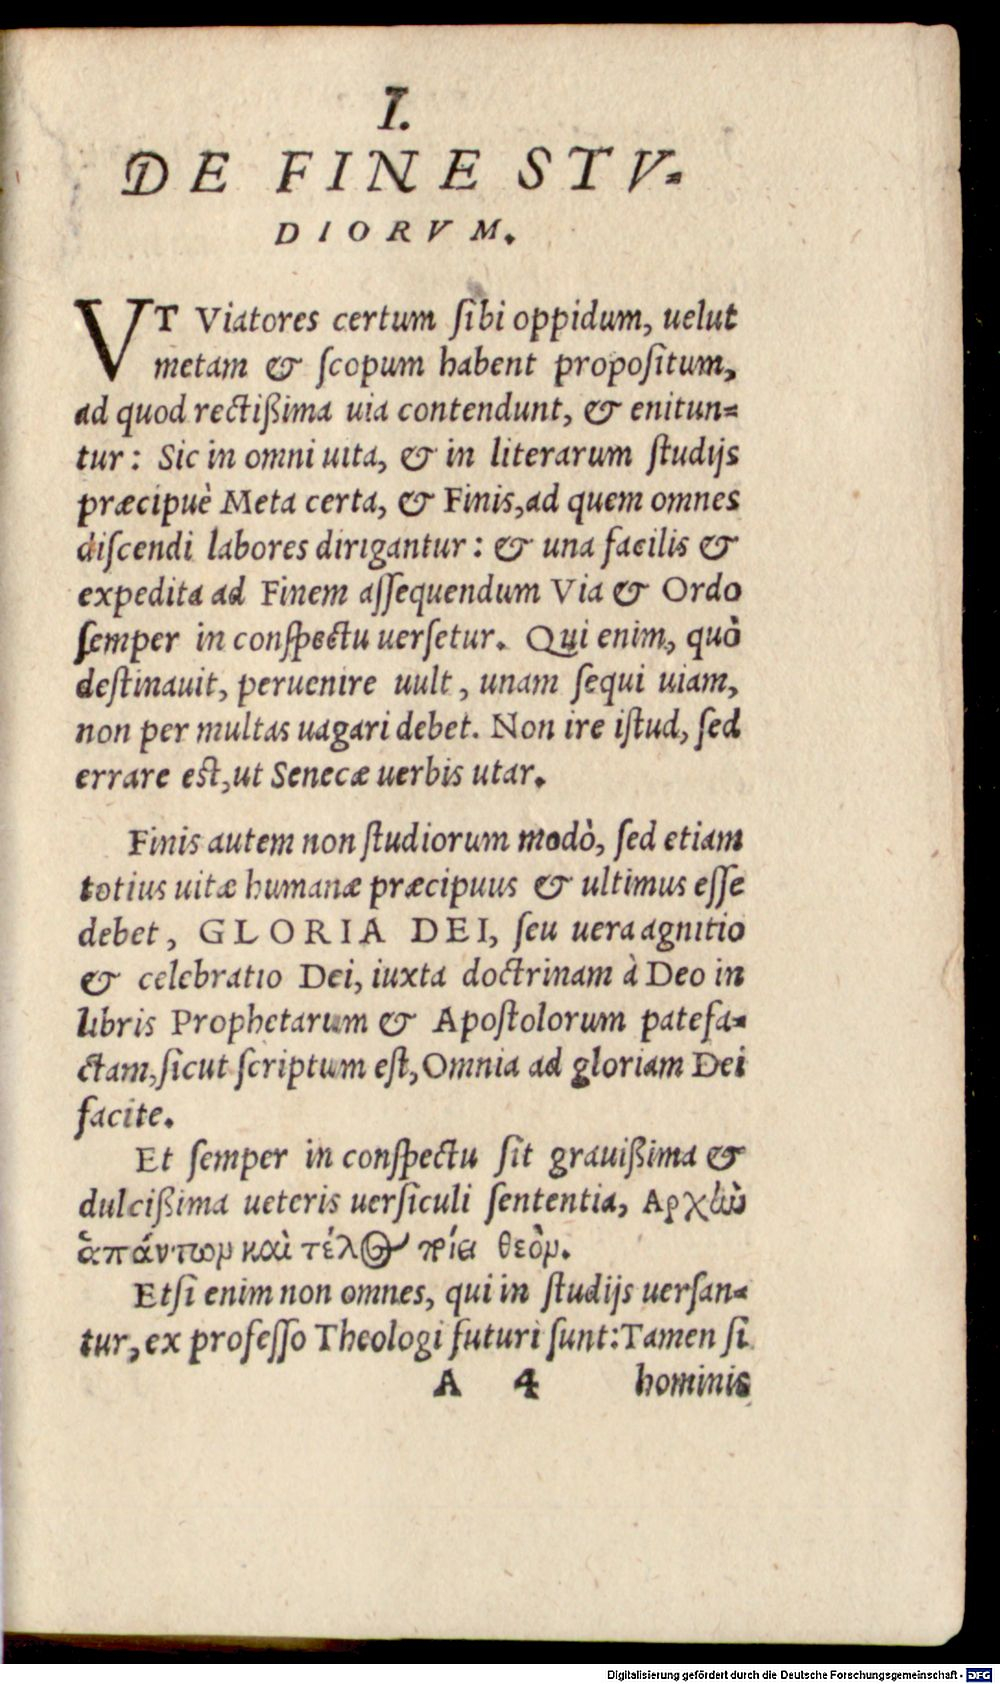 I.
DE FINE STV-
DIORVM.
VT Viatores certum ſibi oppidum, uelut
metam & ſcopum habent propoſitum,
ad quod rectißima uia contendunt, & enitun-
tur: Sic in omni uita, & in literarum ſtudijs
præcipuè Meta certa, & Finis, ad quem omnes
diſcendi labores dirigantur: & una facilis &
expedita ad Finem aſſequendum Via & Ordo
ſemper in conſpectu uerſetur. Qui enim, quò
deſtinauit, peruenire uult, unam ſequi uiam,
non per multas uagari debet. Non ire iſtud, ſed
errare est, ut Senecæ uerbis utar.
Finis autem non ſtudiorum modò, ſed etiam
totius uitæ humanæ præcipuus & ultimus eſſe
debet, GLORIA DEI, ſeu uera agnitio
& celebratio Dei, iuxta doctrinam à Deo in
libris Prophetarum & Apoſtolorum patefa-
ctam, ſicut ſcriptum eſt, Omnia ad gloriam Dei
facite.
Et ſemper in conſpectu ſit grauißima &
dulcißima ueteris uerſiculi ſententia, Αρχὼ
ἁπάντωμ καὶ τέλος θεὸμ.
Etſi enim non omnes, qui in ſtudijs uerſan-
tur, ex profeſſo Theologi futuri ſunt: Tamen ſi
A 4 hominis
Digitalisierung gefördert durch die Deutsche Forschungsgemeinschaft - DFG